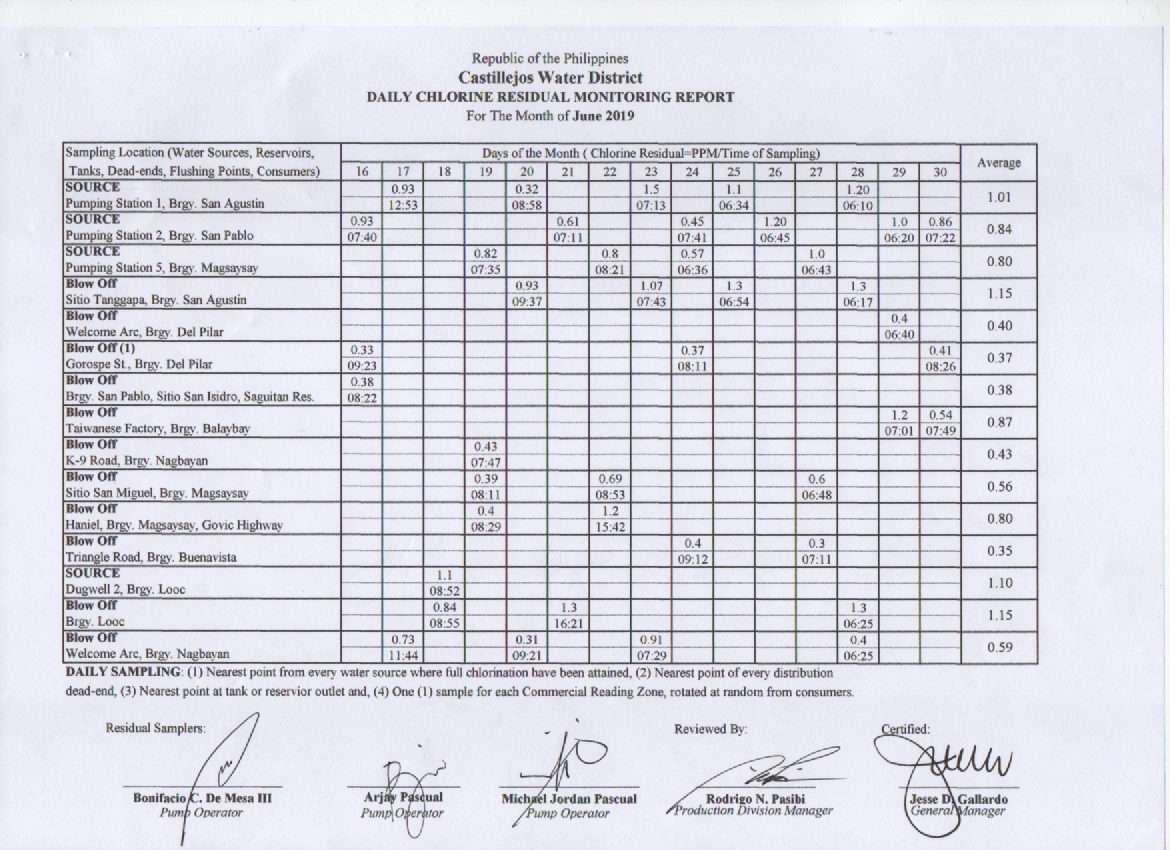 Republic of the Philippines
Castillejos Water District
DAILY CHLORINE RESIDUAL MONITORING REPORT
For The Month of June 2019
Sampling Location (Water Sources, Reservoirs, Days of the Month ( Chlorine Residual=PPM/Time of Sampling) Average
Tanks, Dead-ends, Flushing Points, Consumers) 16 17 18 19 20 21 22 23 24 25 26 27 28 29 30
SOURCE 0.93 0.32 1.5 1.1 1.20 1.01
Pumping Station 1, Brgy. San Agustin 12:53 08:58 07:13 06:34 06:10
SOURCE 0.93 0.61 0.45 1.20 1.0 0.86 0.84
Pumping Station 2, Brgy. San Pablo 07:40 07:11 07:41 06:45 06:20 07:22
SOURCE 0.82 0.8 0.57 1.0 0.80
Pumping Station 5, Brgy. Magsaysay 07:35 08:21 06:36 06:43
Blow Off 0.93 1.07 1.3 1.3 1.15
Sitio Tanggapa, Brgy. San Agustin 09:37 07:43 06:54 06:17
Blow Off 0.4 0.40
Welcome Arc, Brgy. Del Pilar 06:40
Blow Off (1) 0.33 0.37 0.41 0.37
Gorospe St., Brgy. Del Pilar 09:23 08:11 08:26
Blow Off 0.38 0.38
Brgy. San Pablo, Sitio San Isidro, Saguitan Res. 08:22
Blow Off 1.2 0.54 0.87
Taiwanese Factory, Brgy. Balaybay 07:01 07:49
Blow Off 0.43 0.43
K-9 Road, Brgy. Nagbayan 07:47
Blow Off 0.39 0.69 0.6 0.56
Sitio San Miguel, Brgy. Magsaysay 08:11 08:53 06:48
Blow Off 0.4 1.2 0.80
Haniel, Brgy. Magsaysay, Govic Highway 08:29 15:42
Blow Off 0.4 0.3 0.35
Triangle Road, Brgy. Buenavista 09:12 07:11
SOURCE 1.1 1.10
Dugwell 2, Brgy. Looc 08:52
Blow Off 0.84 1.3 1.3 1.15
Brgy. Looc 08:55 16:21 06:25
Blow Off 0.73 0.31 0.91 0.4 0.59
Welcome Arc, Brgy. Nagbayan 11:44 09:21 07:29 06:25
DAILY SAMPLING: (1) Nearest point from every water source where full chlorination have been attained, (2) Nearest point of every distribution
dead-end, (3) Nearest point at tank or reservior outlet and, (4) One (1) sample for each Commercial Reading Zone, rotated at random from consumers.
Residual Samplers: Reviewed By: Certified:
Bonifacio C. De Mesa III Arjay Pascual Michael Jordan Pascual Rodrigo N. Pasibi Jesse D. Gallardo
Pump Operator Pump Operator Pump Operator Production Division Manager General Manager